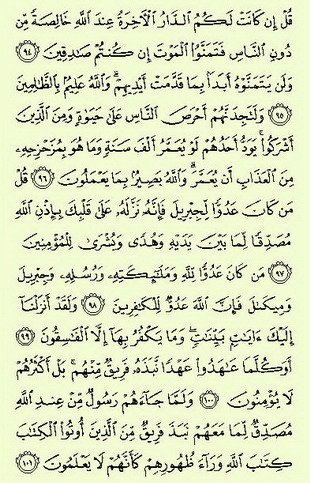 قُلْ إِن كَانَتْ لَكُمُ الدَّارُ الْآخِرَةُ عِندَ اللَّهِ خَالِصَةً مِّن
دُونِ النَّاسِ فَتَمَنَّوُا الْمَوْتَ إِن كُنتُمْ صَادِقِينَ ٩٤
وَلَن يَتَمَنَّوْهُ أَبَدًا بِمَا قَدَّمَتْ أَيْدِيهِمْ ۗ وَاللَّهُ عَلِيمٌ بِالظَّالِمِينَ
٩٥ وَلَتَجِدَنَّهُمْ أَحْرَصَ النَّاسِ عَلَىٰ حَيَوٰةٍ وَمِنَ الَّذِينَ
أَشْرَكُوا ۚ يَوَدُّ أَحَدُهُمْ لَوْ يُعَمَّرُ أَلْفَ سَنَةٍ وَمَا هُوَ بِمُزَحْزِحِهِ
مِنَ الْعَذَابِ أَن يُعَمَّرَ ۗ وَاللَّهُ بَصِيرٌ بِمَا يَعْمَلُونَ ٩٦ قُلْ
مَن كَانَ عَدُوًّا لِّجِبْرِيلَ فَإِنَّهُ نَزَّلَهُ عَلَىٰ قَلْبِكَ بِإِذْنِ اللَّهِ
مُصَدِّقًا لِّمَا بَيْنَ يَدَيْهِ وَهُدًى وَبُشْرَىٰ لِلْمُؤْمِنِينَ
٩٧ مَن كَانَ عَدُوًّا لِّلَّهِ وَمَلَٰٓئِكَتِهِ وَرُسُلِهِ وَجِبْرِيلَ
وَمِيكَىٰلَ فَإِنَّ اللَّهَ عَدُوٌّ لِّلْكَٰفِرِينَ ٩٨ وَلَقَدْ أَنزَلْنَا
إِلَيْكَ ءَايَٰتٍ بَيِّنَٰتٍ ۖ وَمَا يَكْفُرُ بِهَا إِلَّا الْفَاسِقُونَ ٩٩
أَوَكُلَّمَا عَٰهَدُوا عَهْدًا نَّبَذَهُ فَرِيقٌ مِّنْهُم ۚ بَلْ أَكْثَرُهُمْ
لَا يُؤْمِنُونَ ١٠٠ وَلَمَّا جَاءَهُمْ رَسُولٌ مِّنْ عِندِ اللَّهِ
مُصَدِّقٌ لِّمَا مَعَهُمْ نَبَذَ فَرِيقٌ مِّنَ الَّذِينَ أُوتُوا الْكِتَٰبَ
كِتَٰبَ اللَّهِ وَرَاءَ ظُهُورِهِمْ كَأَنَّهُمْ لَا يَعْلَمُونَ ١٠١